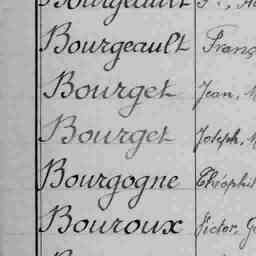 Bourgeault
Bourgeault Franç
Bourget Jean, M
Bourget Joseph, M
Bourgogne Théophil
Bouroux Victor, Ge